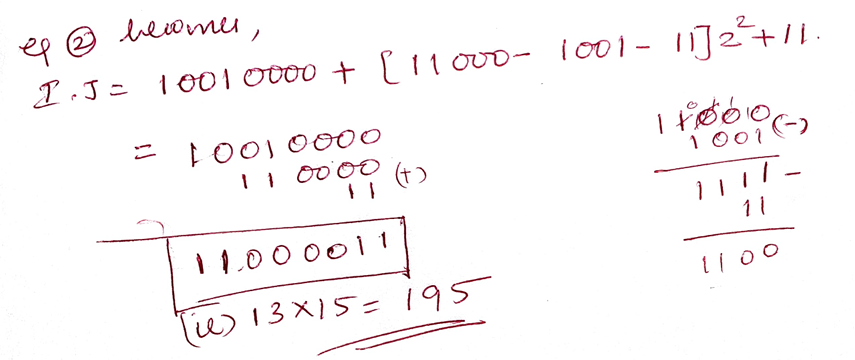 eq ② becomes,
I.J = 10010000 + [11000 - 1001 - 11]2² + 11.
= 10010000
110000
11 (+)
11000011
(ie) 13 x 15 = 195
11000
1001 (-)
1111 -
11
1100